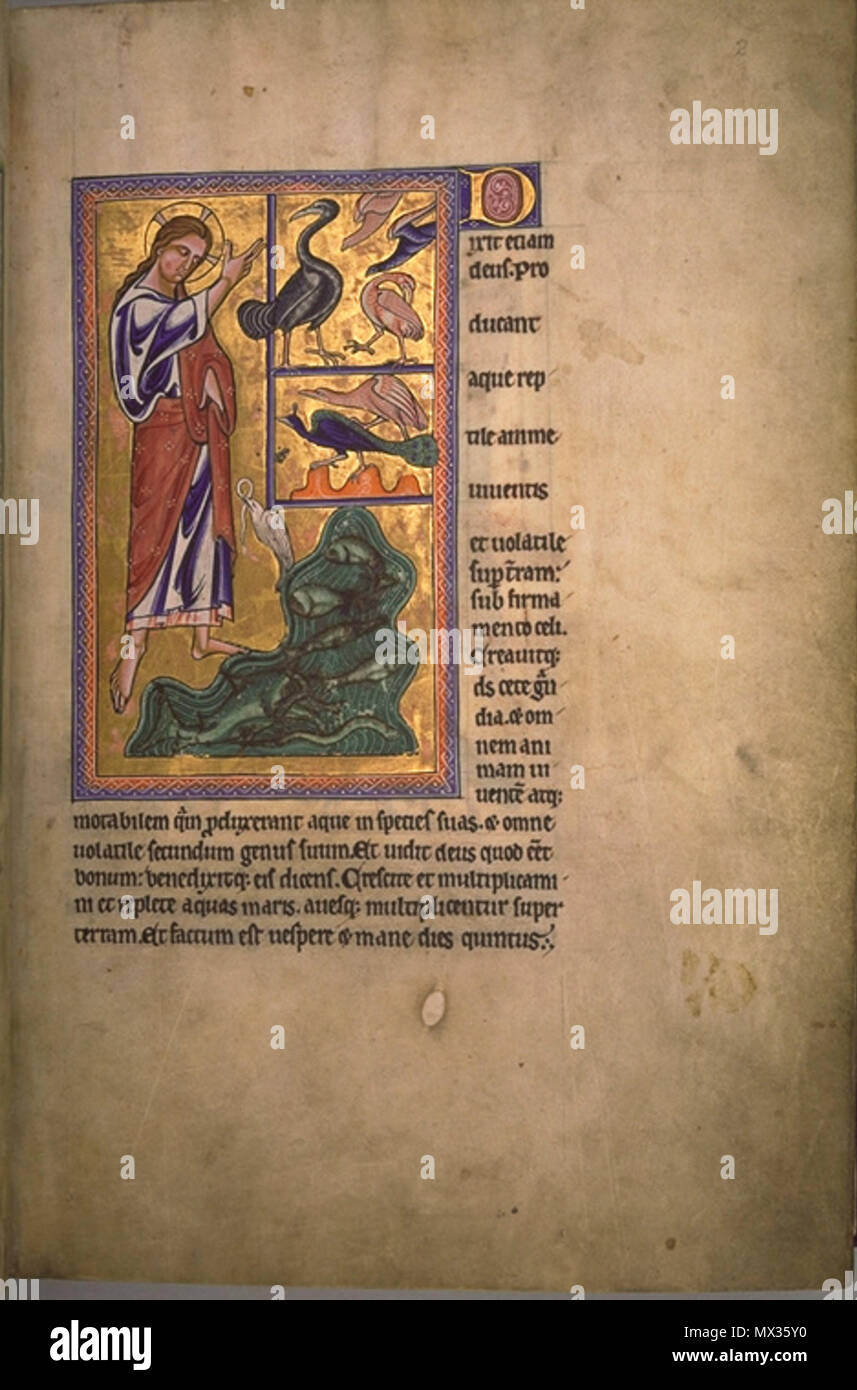 2
D
ixit etiam
deus: Pro
ducant
aque rep
tile anime
uiuentis
et uolatile
sup̄ t̄ram:
sub firma
mento celi.
Creauitq:
ds cete g̃n
dia. & om
nem ani
mam ui
uentē atq:
motabilem q̃m ꝓduxerant aque in species suas. & omne
uolatile secundum genus suum. Et uidit deus quod eēt
bonum: benedixitq: eis dicens. Crescite et multiplicami
ni et replete aquas maris. auesq: multiplicentur super
terram. Et factum est uespere & mane dies quintus.
alamy
alamy
alamy
alamy
a a a a a a a a a a
alamy
Image ID: MX35Y0
www.alamy.com